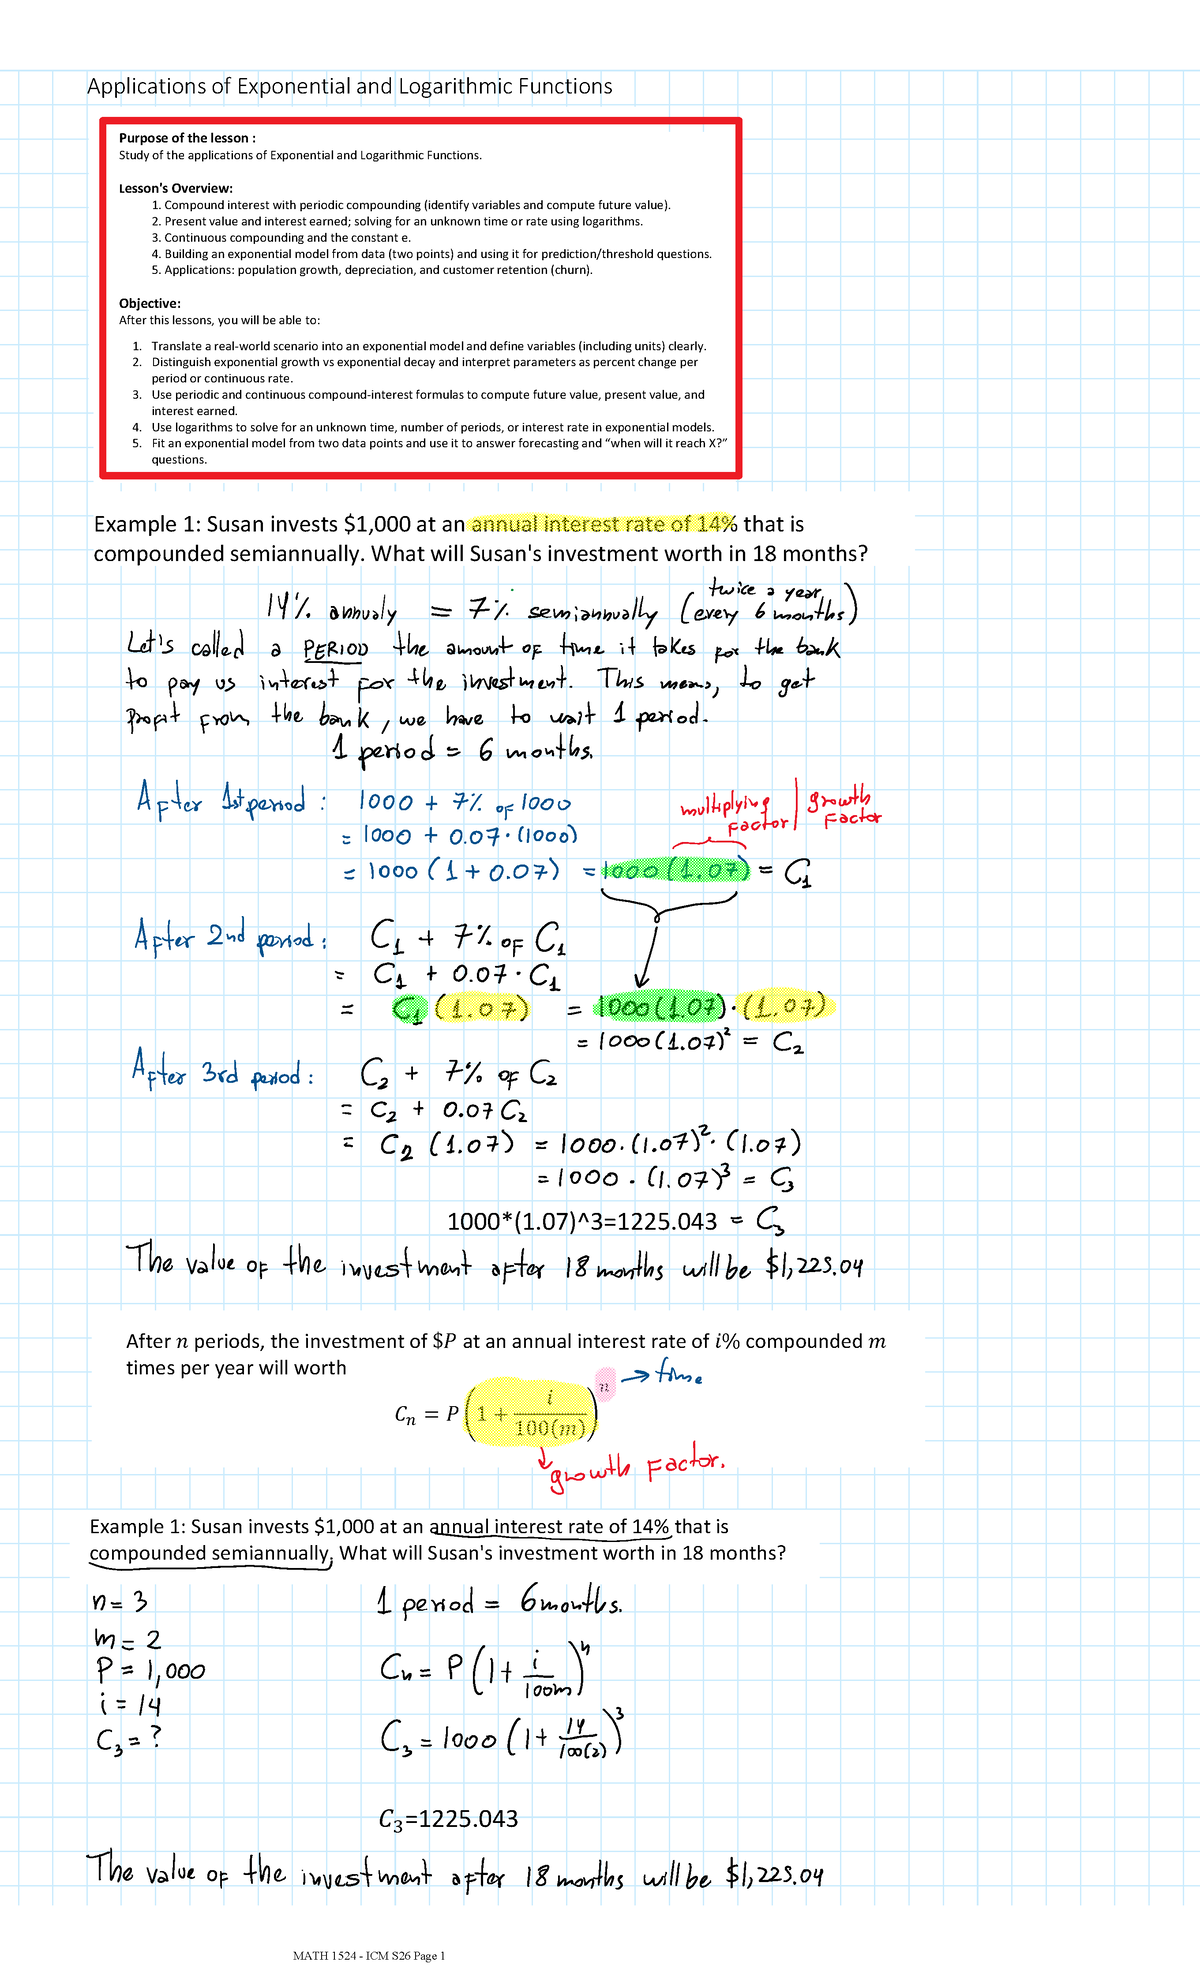 Applications of Exponential and Logarithmic Functions
Purpose of the lesson :
Study of the applications of Exponential and Logarithmic Functions.
Lesson's Overview:
1. Compound interest with periodic compounding (identify variables and compute future value).
2. Present value and interest earned; solving for an unknown time or rate using logarithms.
3. Continuous compounding and the constant e.
4. Building an exponential model from data (two points) and using it for prediction/threshold questions.
5. Applications: population growth, depreciation, and customer retention (churn).
Objective:
After this lessons, you will be able to:
1. Translate a real-world scenario into an exponential model and define variables (including units) clearly.
2. Distinguish exponential growth vs exponential decay and interpret parameters as percent change per
period or continuous rate.
3. Use periodic and continuous compound-interest formulas to compute future value, present value, and
interest earned.
4. Use logarithms to solve for an unknown time, number of periods, or interest rate in exponential models.
5. Fit an exponential model from two data points and use it to answer forecasting and “when will it reach X?”
questions.
Example 1: Susan invests $1,000 at an annual interest rate of 14% that is
compounded semiannually. What will Susan's investment worth in 18 months?
14% annualy = 7% semiannually (twice a year, every 6 months)
Let's called a PERIOD the amount of time it takes for the bank
to pay us interest for the investment. This means, to get
Profit from the bank, we have to wait 1 period.
1 period = 6 months.
After 1st period : 1000 + 7% of 1000
= 1000 + 0.07·(1000)
multiplying factor | growth factor
= 1000 (1 + 0.07) = 1000 (1.07) = C₁
After 2nd period : C₁ + 7% of C₁
= C₁ + 0.07 · C₁
= C₁ (1.07) = 1000(1.07)·(1.07)
= 1000(1.07)² = C₂
After 3rd period : C₂ + 7% of C₂
= C₂ + 0.07 C₂
= C₂ (1.07) = 1000·(1.07)²·(1.07)
= 1000 · (1.07)³ = C₃
1000*(1.07)^3=1225.043 = C₃
The value of the investment after 18 months will be $1,225.04
After n periods, the investment of $P at an annual interest rate of i% compounded m
times per year will worth
Cₙ = P(1 + i/100(m))ⁿ → time
↓ growth Factor.
Example 1: Susan invests $1,000 at an annual interest rate of 14% that is
compounded semiannually. What will Susan's investment worth in 18 months?
n = 3 1 period = 6 months.
m = 2
P = 1,000 Cₙ = P (1 + i/100m)ⁿ
i = 14
C₃ = ? C₃ = 1000 (1 + 14/100(2))³
C₃=1225.043
The value of the investment after 18 months will be $1,225.04
MATH 1524 - ICM S26 Page 1